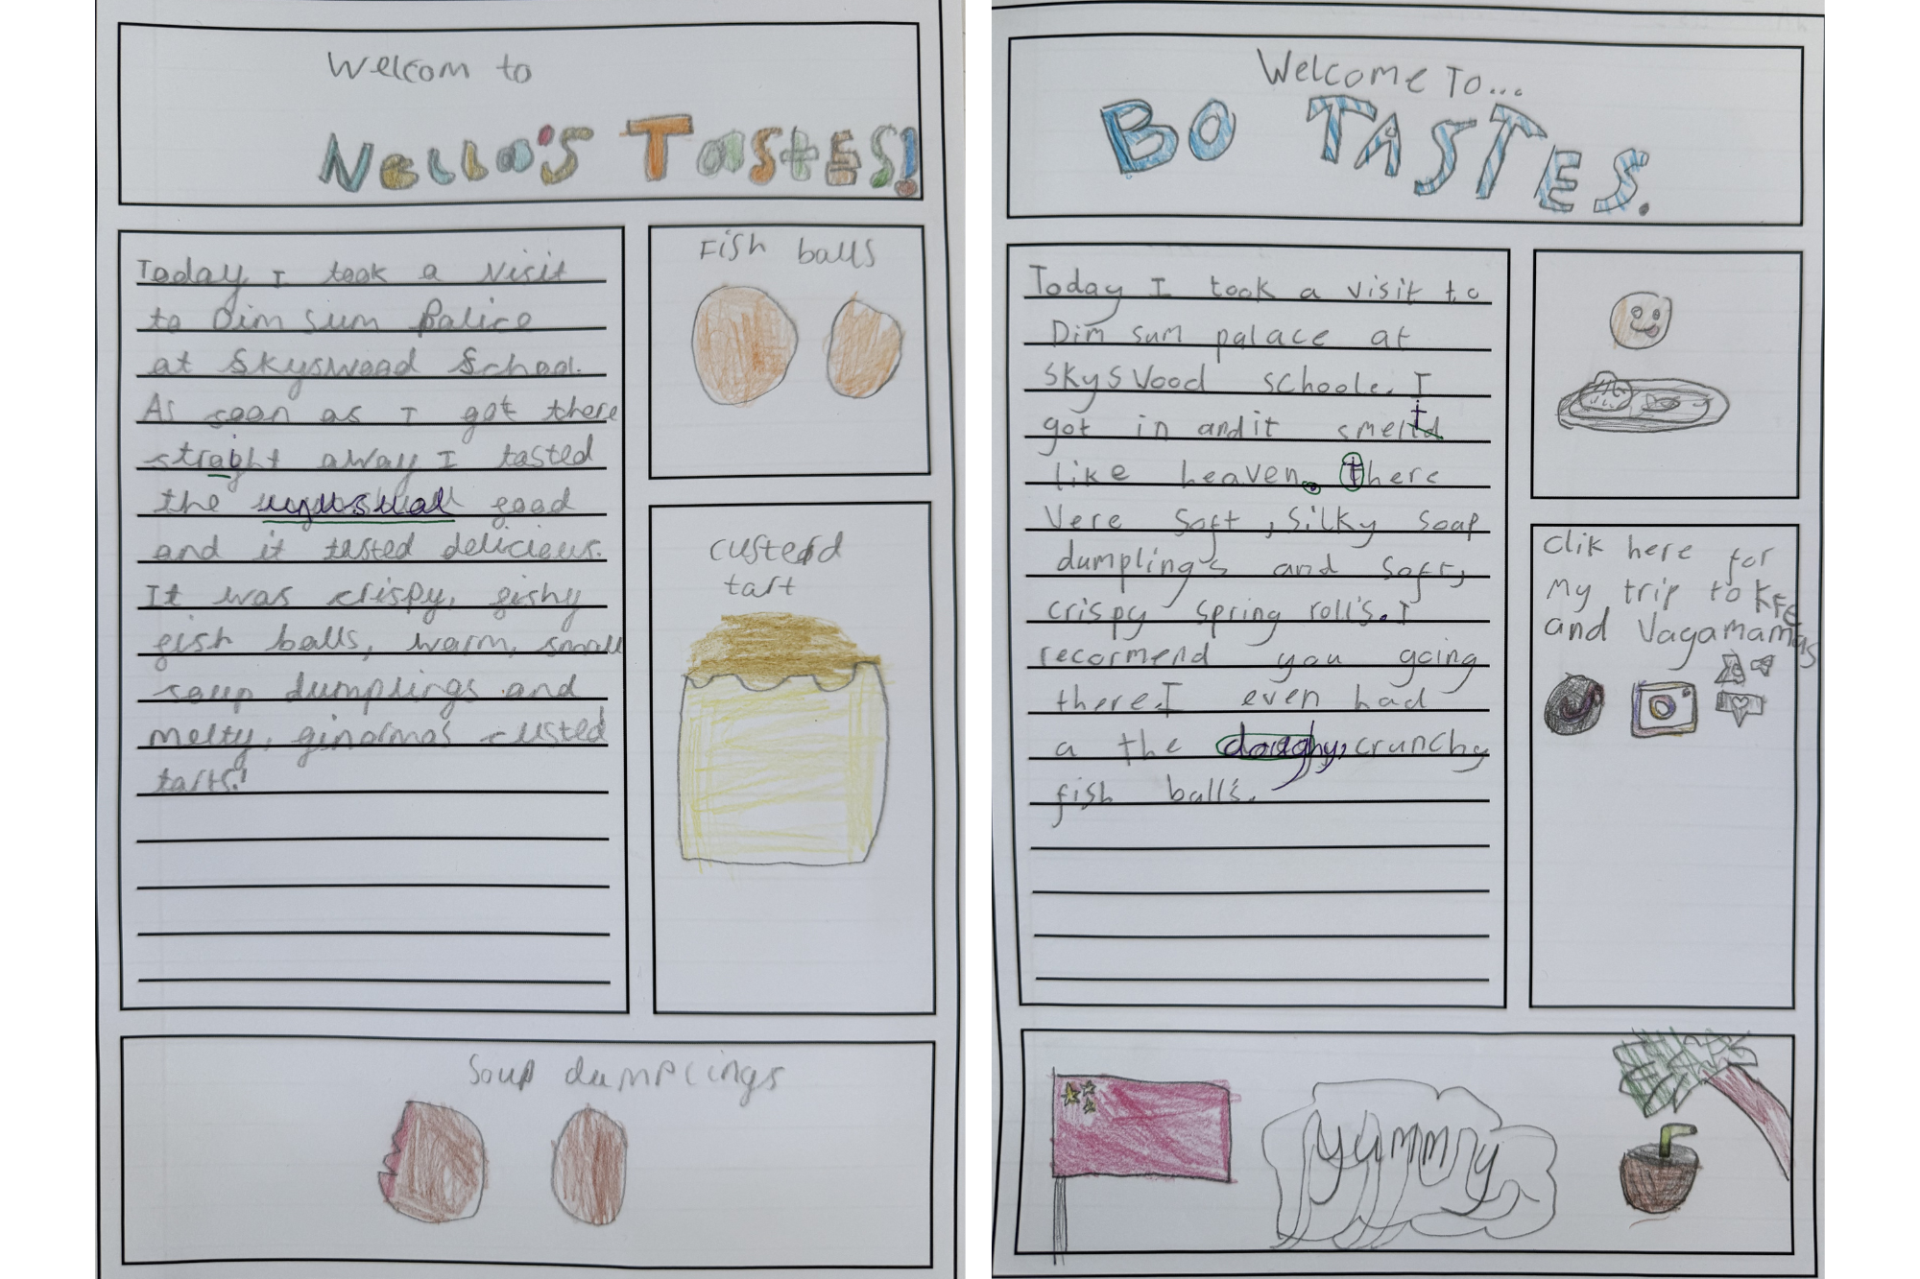 Welcom to
Nella's Tastes!
Today I took a visit
to Dim sum Palice
at Skyswood School.
As soon as I got there
straight away I tasted
the unusual food
and it tasted delicious.
It was crispy, fishy
fish balls, warm, small
soup dumplings and
melty, ginormos custed
tarts!
Fish balls
custerd
tart
Soup dumplings
Welcome To...
BO TASTES.
Today I took a visit to
Dim sum palace at
SKYSVood schoole. I
got in and it smelt
like heaven. There
Vere soft, silky soap
dumpling's and soft,
crispy spring roll's. I
recormend you going
there. I even had
a the doughy, crunchy
fish ball's.
clik here for
my trip to KFC
and Vagamamas
yummy